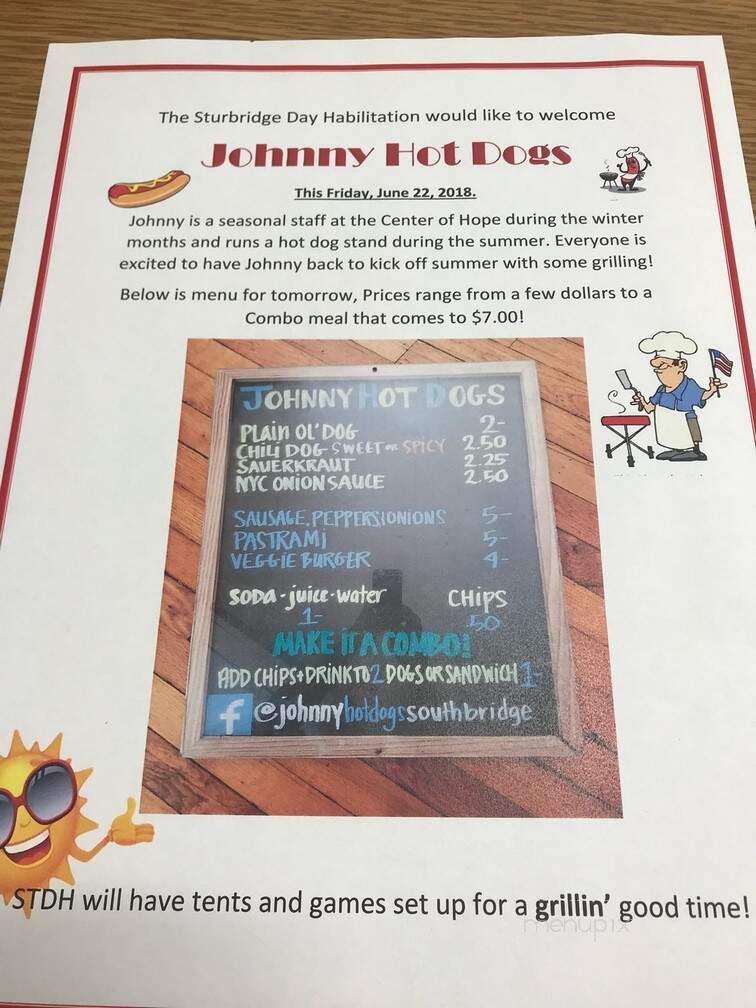 The Sturbridge Day Habilitation would like to welcome
Johnny Hot Dogs
This Friday, June 22, 2018.
Johnny is a seasonal staff at the Center of Hope during the winter
months and runs a hot dog stand during the summer. Everyone is
excited to have Johnny back to kick off summer with some grilling!
Below is menu for tomorrow, Prices range from a few dollars to a
Combo meal that comes to $7.00!
JOHNNY HOT DOGS
PLAIN OL' DOG 2-
CHILI DOG - SWEET OR SPICY 2.50
SAUERKRAUT 2.25
NYC ONION SAUCE 2.50
SAUSAGE, PEPPERS, ONIONS 5-
PASTRAMI 5-
VEGGIE BURGER 4-
SODA - JUICE - WATER CHIPS
1- .50
MAKE IT A COMBO!
ADD CHIPS + DRINK TO 2 DOGS OR SANDWICH 1-
f @johnnyhotdogssouthbridge
STDH will have tents and games set up for a grillin' good time!
menupix